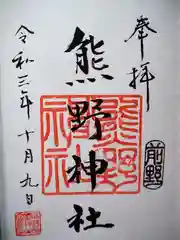 奉拝
前野
熊野神社
熊野神社
令和三年十月九日